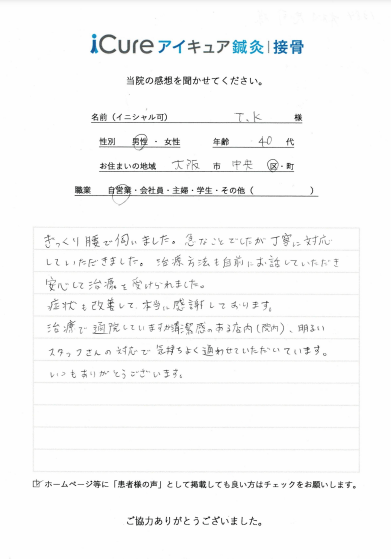 iCure アイキュア鍼灸|接骨
当院の感想を聞かせてください。
名前(イニシャル可) T.K 様
性別 男性 ・ 女性 年齢 40 代
お住まいの地域 大阪 市 中央 区・町
職業 自営業・会社員・主婦・学生・その他( )
ぎっくり腰で伺いました。急なことでしたが丁寧に対応
していただきました。治療方法も事前にお話していただき
安心して治療を受けられました。
症状も改善して、本当に感謝しております。
治療で通院していますが清潔感のある店内(院内)、明るい
スタッフさんの対応で気持ちよく通わせていただいています。
いつもありがとうございます。
ホームページ等に「患者様の声」として掲載しても良い方はチェックをお願いします。
ご協力ありがとうございました。